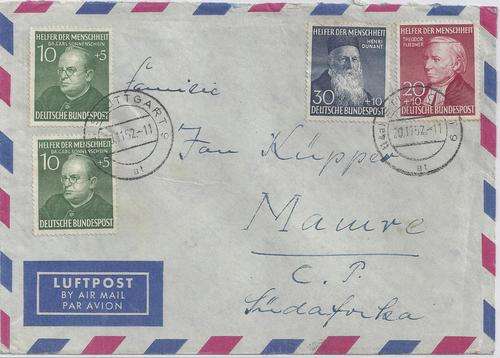 10 +5
HELFER DER MENSCHHEIT
DR. CARL SONNENSCHEIN
DEUTSCHE BUNDESPOST
HELFER DER MENSCHHEIT
HENRI
DUNANT
30 +10
DEUTSCHE BUNDESPOST
HELFER DER MENSCHHEIT
THEODOR
FLIEDNER
20
+10
DEUTSCHE BUNDESPOST
STUTTGART 9
20.11.52.-11
a1
20.11.52.-11
a1
10 +5
HELFER DER MENSCHHEIT
DR. CARL SONNENSCHEIN
DEUTSCHE BUNDESPOST
Familie
Jan Küpper
Mamre
C. P.
Südafrika
LUFTPOST
BY AIR MAIL
PAR AVION